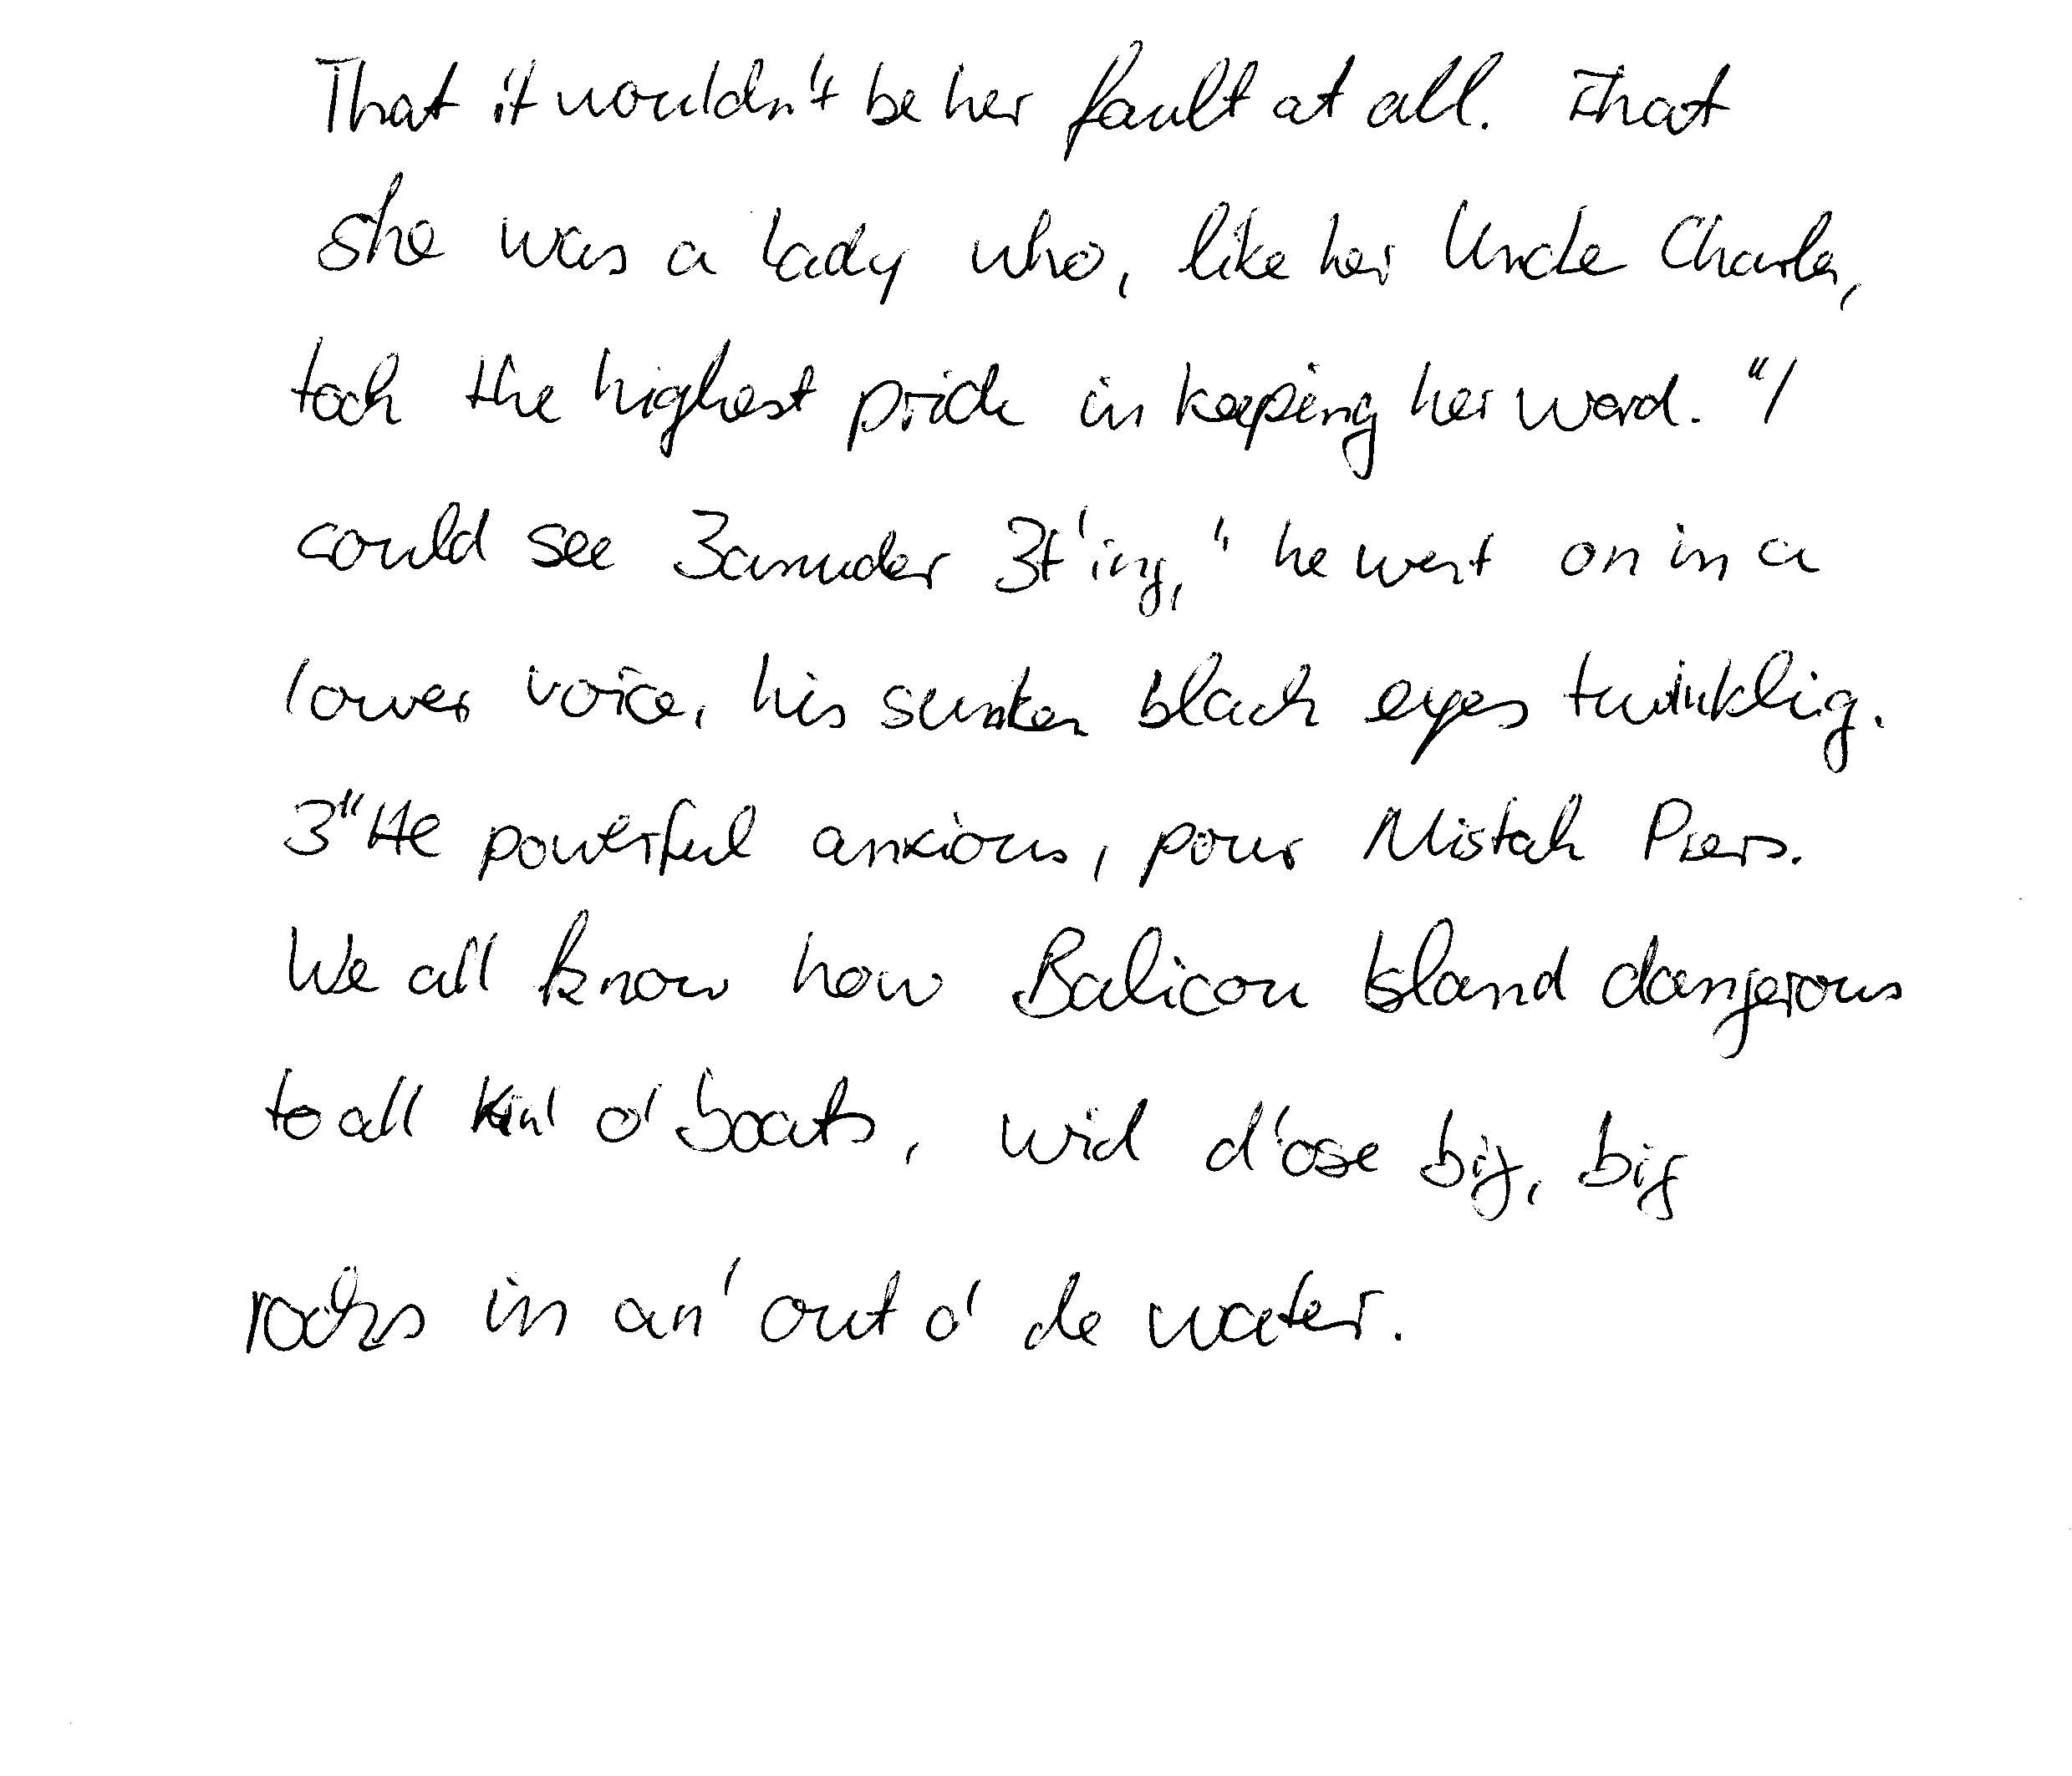 That it wouldn't be her fault at all. That
she was a lady who, like her Uncle Charles,
took the highest pride in keeping her word. "I
could see 3anuder 3t'ing," he went on in a
lower voice, his sunken black eyes twinklig.
3"He powerful anxious, pour Mistah Piers.
We all know how Balicou Island dangerous
to all kin' o' boats, wid d'ose big, big
rocks in an' out o' de water.